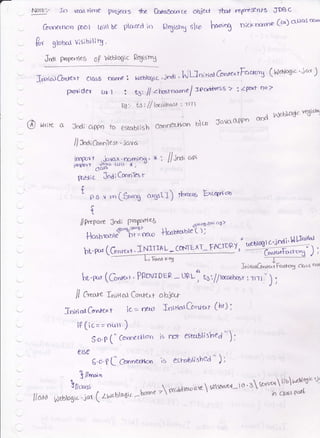 NOTE:- In real time projects the DataSource object that represents JDBC
Connection pool will be placed in Registry s/w having nick name (or) alias name
for global visibility.
Jndi properties of WebLogic Registry
InitialContext class name : weblogic.jndi.WLInitialContextFactory (weblogic.jar)
provider url : t3://<hostname / IPAddress> : <port no>
Eg:- t3://localhost : 7171
* Write a Jndi appn to establish connection b/w Java appn and WebLogic registry
// JndiConnTest.java
import javax.naming.*; // Jndi api
import java.util.*;
public class JndiConnTest
{
p s v m (String args[]) throws Exception
{
// prepare Jndi properties
Hashtable ht = new Hashtable();
ht.put (Context.INITIAL_CONTEXT_FACTORY, "weblogic.jndi.WLInitial
ContextFactory");
InitialContextFactory class name
ht.put (Context.PROVIDER_URL, "t3://localhost:7171");
// Create Initial Context object
InitialContext ic = new InitialContext (ht);
if (ic == null)
S.o.p ("Connection is not established");
else
S.o.p (" Connection is established");
} // main
} // class
// add weblogic.jar (
in class path